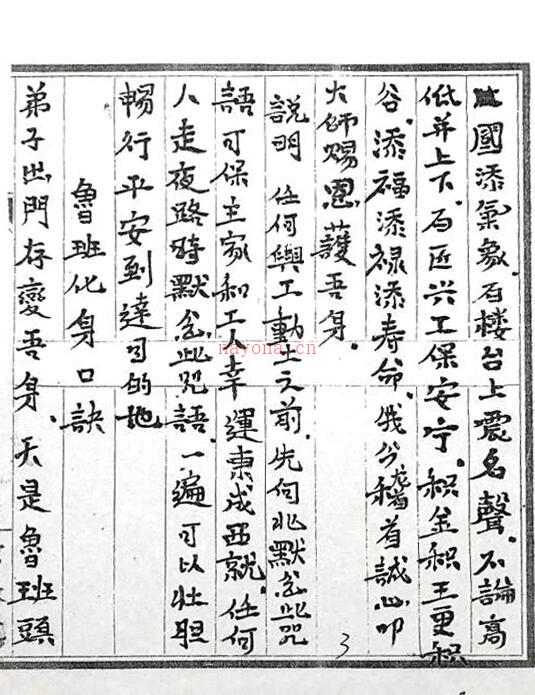 國添氣象.石楼台上震名聲.不論高
低并上下.石匠兴工保安宁.积金积玉更积
谷.添福添禄添寿命.俄兮稽首誠心叩
大師賜恩護吾身.
說明 任何興工動土之前.先向北默念此咒
語可保主家和工人幸運東成西就.任何
人走夜路時默念此咒語.一遍可以壮胆
暢行平安到達目的地
魯班化身口訣
弟子出門存變吾身.天是魯班頭
3
nayona.cn